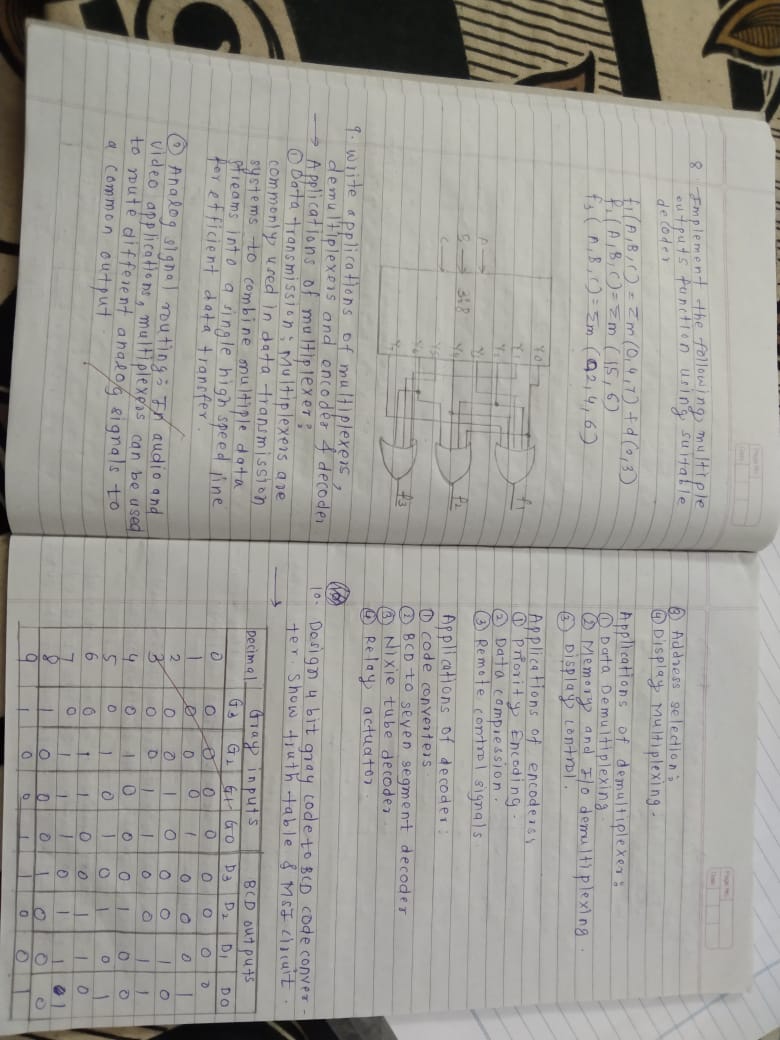 Page No.
Date
8 Implement the following multiple
outputs function using suitable
decoder
f1(A,B,C) = Σm(0,4,7) + d(0,3)
f2(A,B,C) = Σm(15,6)
f3(A,B,C) = Σm(02,4,6)
Y0
Y1
Y1
Y2
Y4
Y5
Y6
A
B
C
3:8
f1
f2
f3
9. Write applications of multiplexers,
demultiplexers and encoder & decoder
→ Applications of multiplexer:
① Data transmission: Multiplexers are
commonly used in data transmission
systems to combine multiple data
streams into a single high speed line
for efficient data transfer.
② Analog signal routing: In audio and
video applications, multiplexers can be used
to route different analog signals to
a common output
Page No.
Date
③ Address selection:
④ Display Multiplexing.
Applications of demultiplexer:
① Data Demultiplexing
② Memory and I/o demultiplexing.
③ Display control.
Applications of encoders:
① Priority Encoding.
② Data compression.
③ Remote control signals
Applications of decoder:
① code converters
② BCD to seven segment decoder
③ Nixie tube decoder
④ Relay actuator.
10. Design 4 bit gray code to BCD code conver-
ter. Show truth table & MSI circuit.
→
Decimal Gray inputs BCD outputs
G3 G2 G1 G0 D3 D2 D1 D0
0 0 0 0 0 0 0 0 0
1 0 0 0 1 0 0 0 1
2 0 0 1 0 0 0 1 0
3 0 0 1 1 0 0 1 1
4 0 1 0 0 0 1 0 0
5 0 1 0 1 0 1 0 1
6 0 1 1 0 0 1 1 0
7 0 1 1 1 0 1 1 1
8 1 0 0 0 1 0 0 0
9 1 0 0 1 1 0 0 1